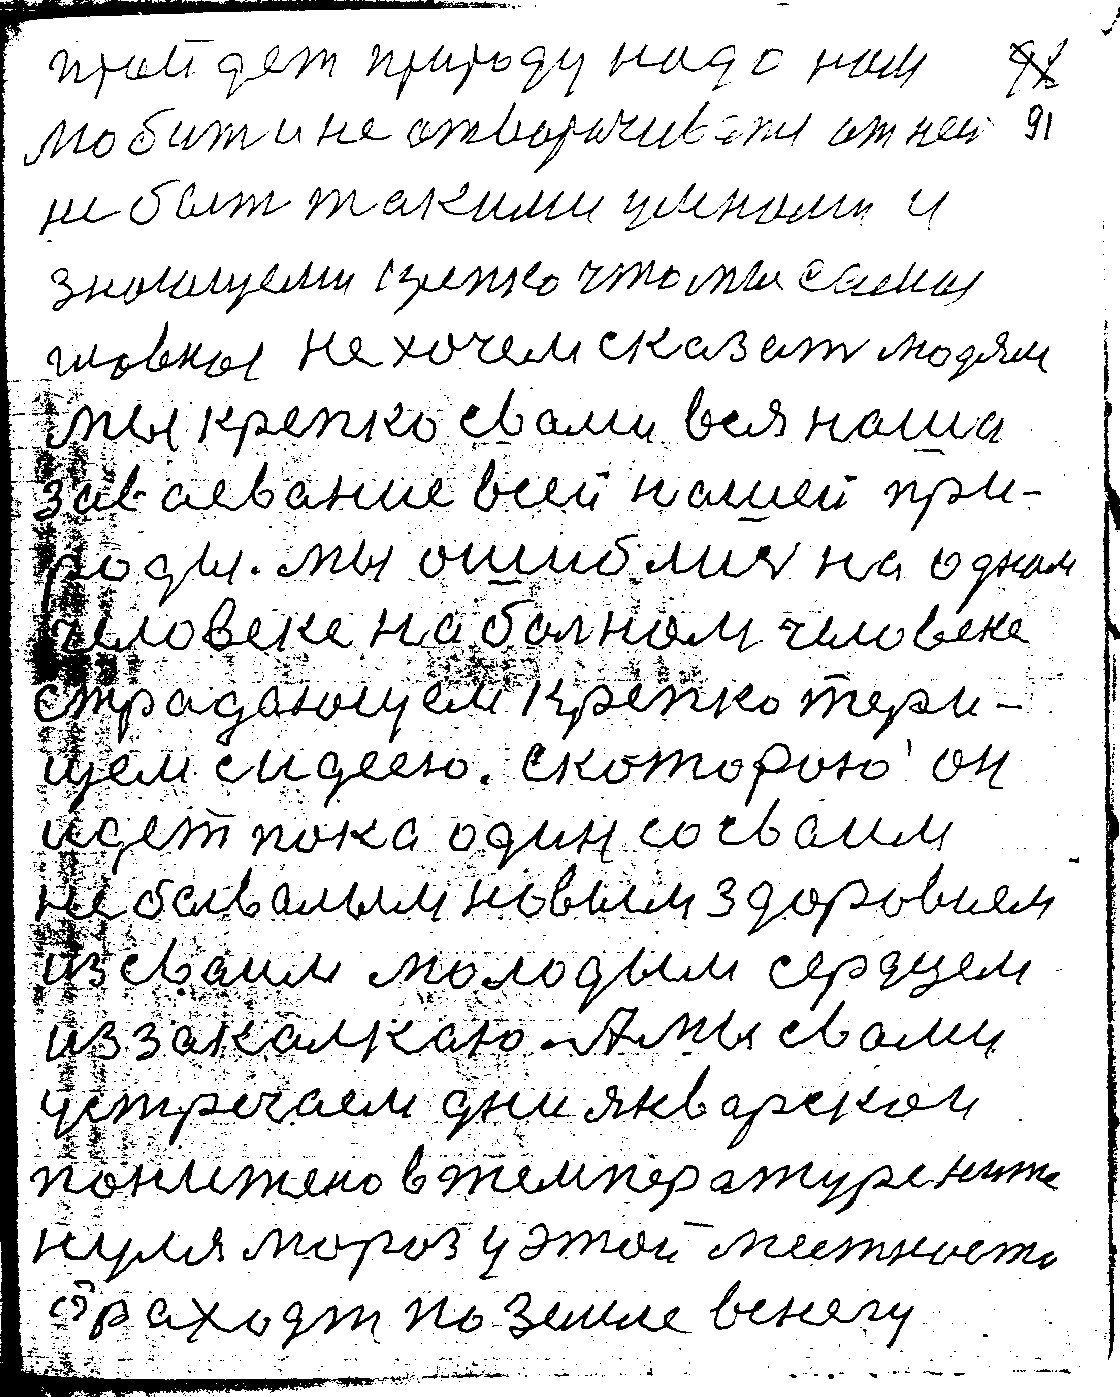 пройдет природу надо нам
любит и не отворачиватя от ней 91
не быт такими умноми и
знающеми крепко что мы самы
главныя не хочем сказат людям
мы крепко свами вся наша
заваевание всей нашей при-
роды. мы ошиблися на одном
человеке на болном человеке
страдающем крепко терп-
щем с идеею. с которою он
идет пока один со сваим
не бывалым новым здоровием
из сваим молодым сердцем
из закалкаю. А мы свами
устречаем дни январской
понижено в температуре ниже
нуля мороз у этой местносте
ходят по земле в снегу